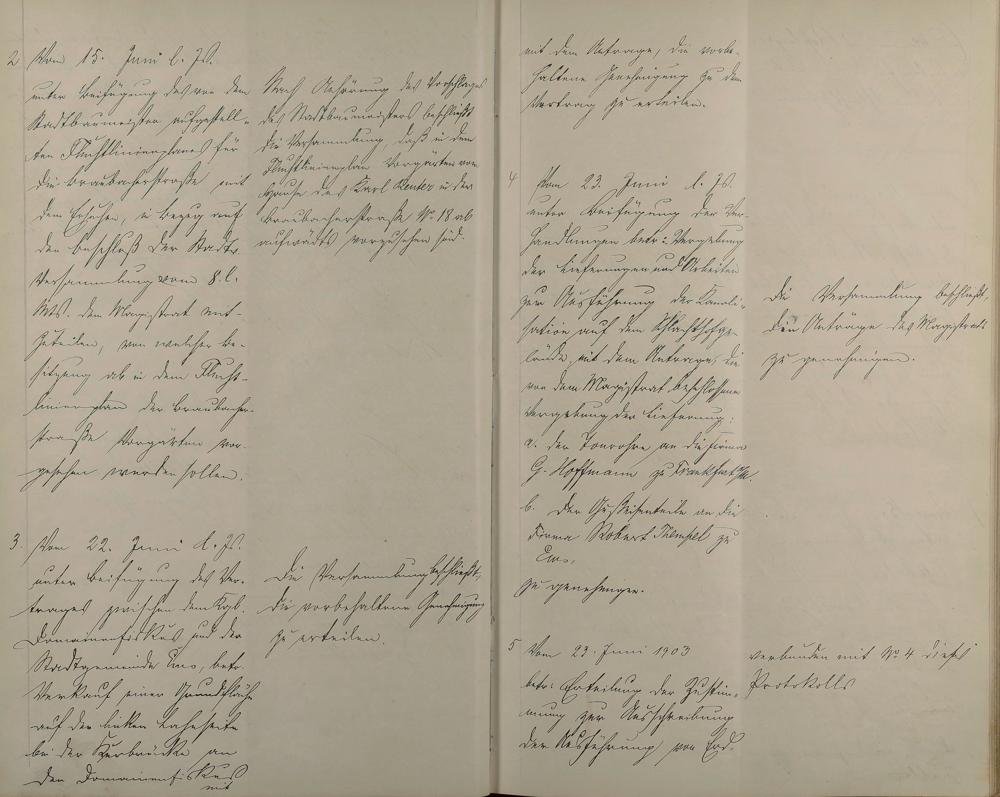 2 Vom 15. Juni l. Js.
unter Beifügung des von dem
Stadtbaumeister aufgestell-
ten Fluchtlinienplanes für
die Braubacherstraße mit
dem Ersuchen, in Bezug auf
den Beschluß der Stadtv.
Versammlung vom 8. l.
Mts. dem Magistrat mit-
zuteilen, von welcher Be-
sitzung ab in dem Flucht-
linienplan der Braubacher-
straße Vorgärten vor-
gesehen werden sollen.
Nach Anhörung des Vorschlages
des Stadtbaumeisters beschließt
die Versammlung, daß in dem
Fluchtlinienplan Vorgärten vom
Hause des Karl Reuter in der
Braubacherstraße No 18 ab
aufwärts vorzusehen sind.
3. Vom 22. Juni l. Js.
unter Beifügung des Ver-
trages zwischen dem Kgl.
Domänenfiskus und der
Stadtgemeinde Ems, betr.
Verkauf einer Grundfläche
auf der linken Lahnseite
bei der Kurbrücke an
den Domainenfiskus
mit
Die Versammlung beschließt,
die vorbehaltene Genehmigung
zu erteilen.
mit dem Antrage, die vorbe-
haltene Genehmigung zu dem
Vertrag zu erteilen.
4 Vom 23. Juni l. Js.
unter Beifügung der Ver-
handlungen betr: Vergebung
der Lieferungen und Arbeiten
zur Ausführung der Kanali-
sation auf dem Schlachthofge-
lände, mit dem Antrage, die
von dem Magistrat beschlossene
Vergebung der Lieferung:
a. der Tonrohre an die Firma
G. Hoffmann zu Frankfurt a/M.
b. der Gußeisenteile an die
Firma Robert zu
Ems,
zu genehmigen.
Die Versammlung beschließt,
die Anträge des Magistrats
zu genehmigen.
5 Vom 23. Juni 1903
betr: Erteilung der Zustim-
mung zur Ausschreibung
der Ausführung von Erd-
verbunden mit No 4 dieses
Protokolls